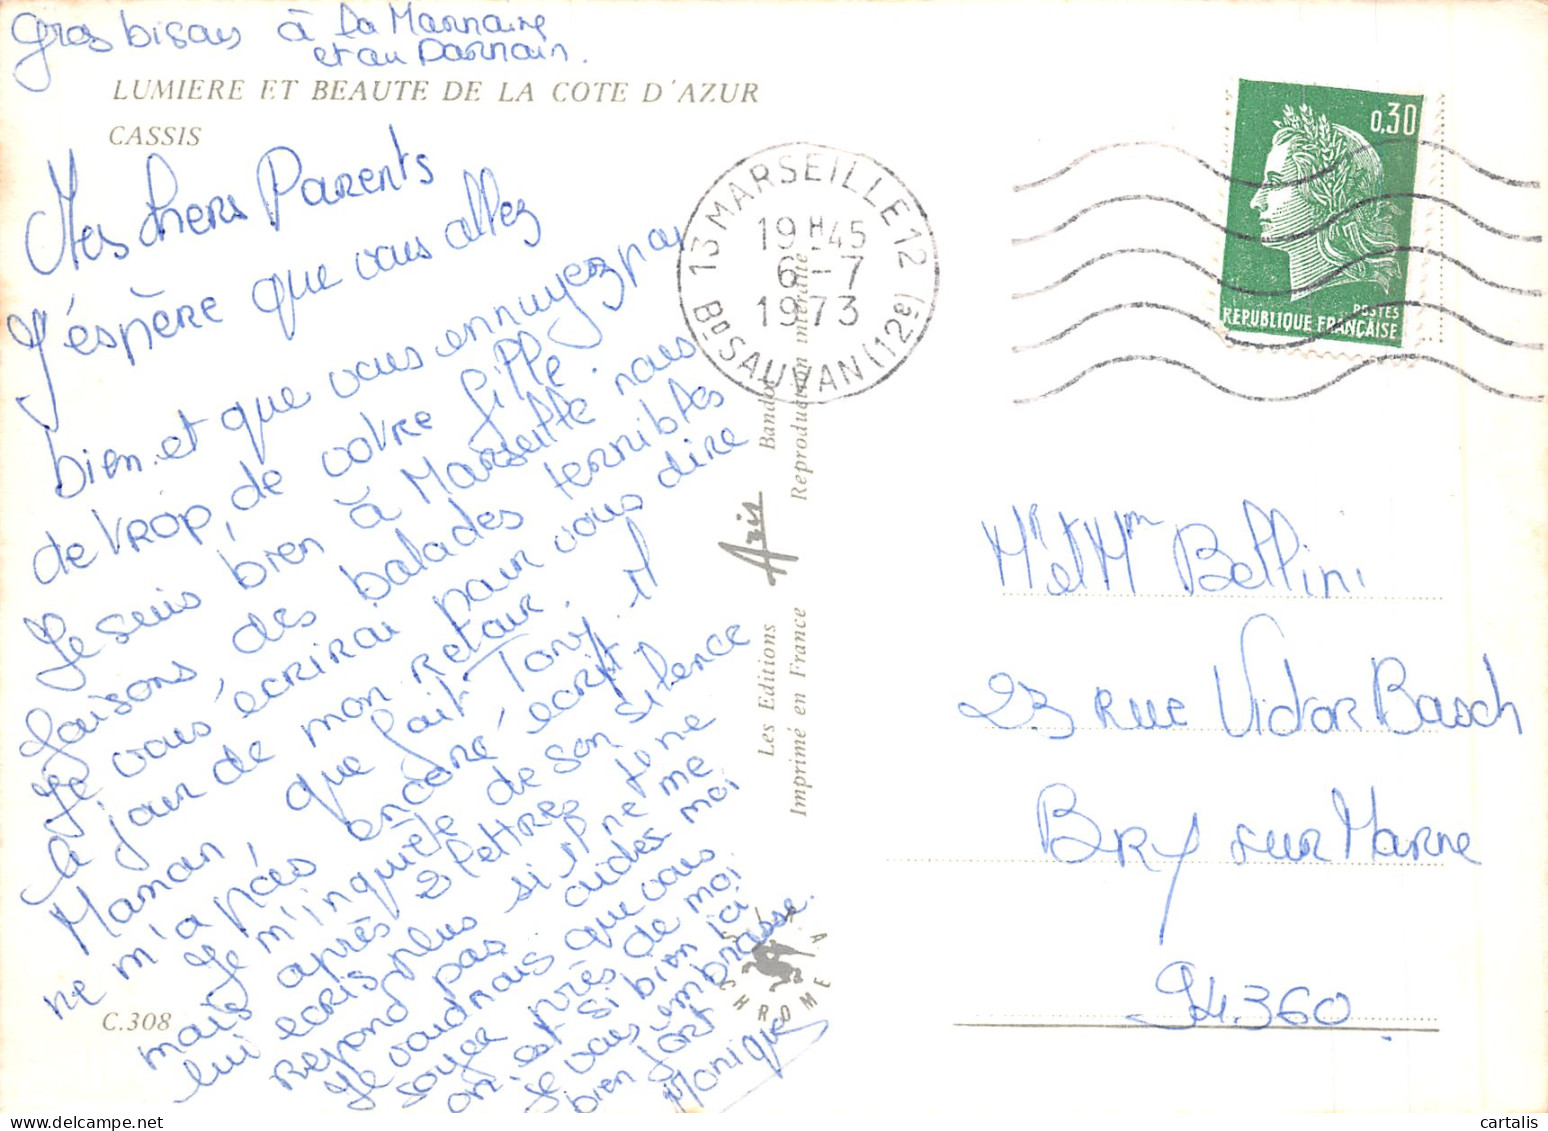 Gros bisous à La Marraine
et au Parrain.
LUMIERE ET BEAUTE DE LA COTE D'AZUR
CASSIS
Mes chers Parents
J'éspère que vous allez
bien et que vous ennuyez pas
de trop, de votre fille.
Je suis bien à Marseille nous
faisons, des balades terribles
Je vous écrirai pour vous dire
le jour de mon retour.
Maman, que fait Tony, il
ne m'a pas encore, écrit
Je m'inquiète de son silence
mais après 2 lettres je ne
lui écris plus si il ne me
repond pas aides moi
Je voudrais que vous
soyez près de moi
on est si bien ici
Je vous embrasse.
bien fort
Monique
C.308
13 MARSEILLE 12
19H45
6-7
1973
Bd SAUVAN (12e)
0,30
POSTES
REPUBLIQUE FRANÇAISE
Les Editions Aris Bandol
Imprimé en France Reproduction interdite
CHROME
Mr et Mme Bellini
23 rue Victor Basch
Bry sur Marne
94.360
cartalis